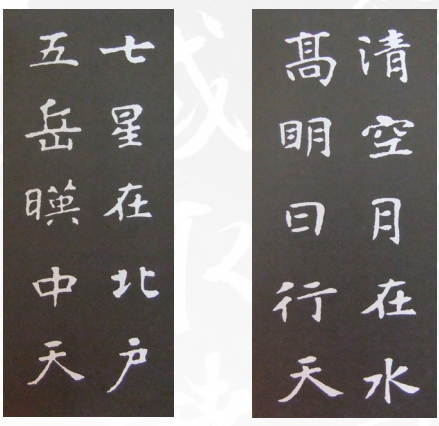 清空月在水
髙眀日行天
七星在北户
五岳暎中天